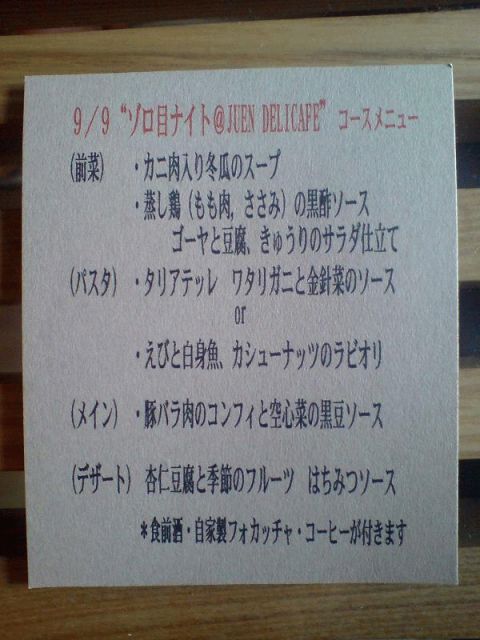 9/9 “ゾロ目ナイト@JUEN DELICAFE” コースメニュー
(前菜) ・カニ肉入り冬瓜のスープ
・蒸し鶏(もも肉,ささみ)の黒酢ソース
ゴーヤと豆腐、きゅうりのサラダ仕立て
(パスタ) ・タリアテッレ ワタリガニと金針菜のソース
or
・えびと白身魚、カシューナッツのラビオリ
(メイン) ・豚バラ肉のコンフィと空心菜の黒豆ソース
(デザート) 杏仁豆腐と季節のフルーツ はちみつソース
*食前酒・自家製フォカッチャ・コーヒーが付きます